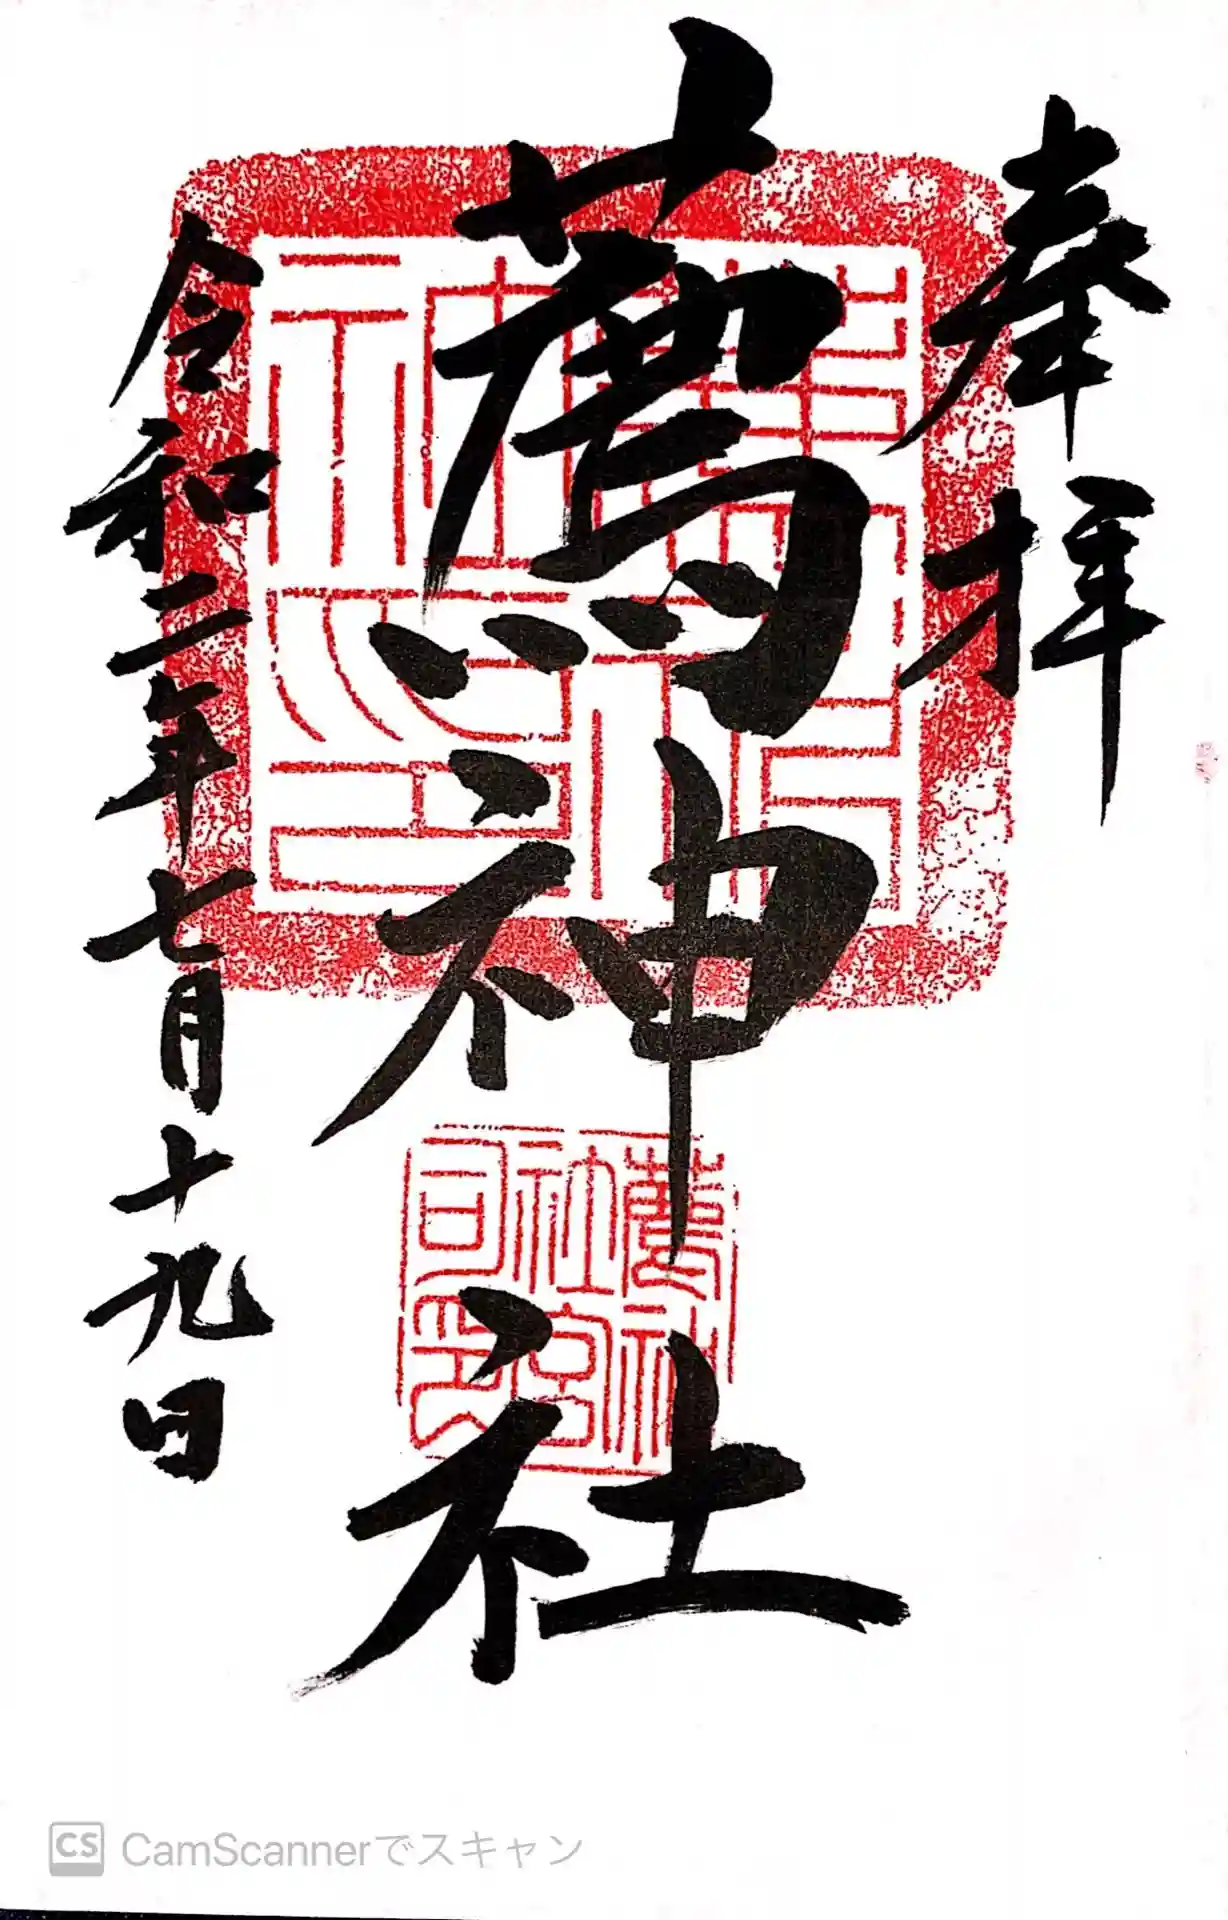 奉拝
薦神社
薦神
社宮
司印
令和二年七月十九日
CS CamScannerでスキャン